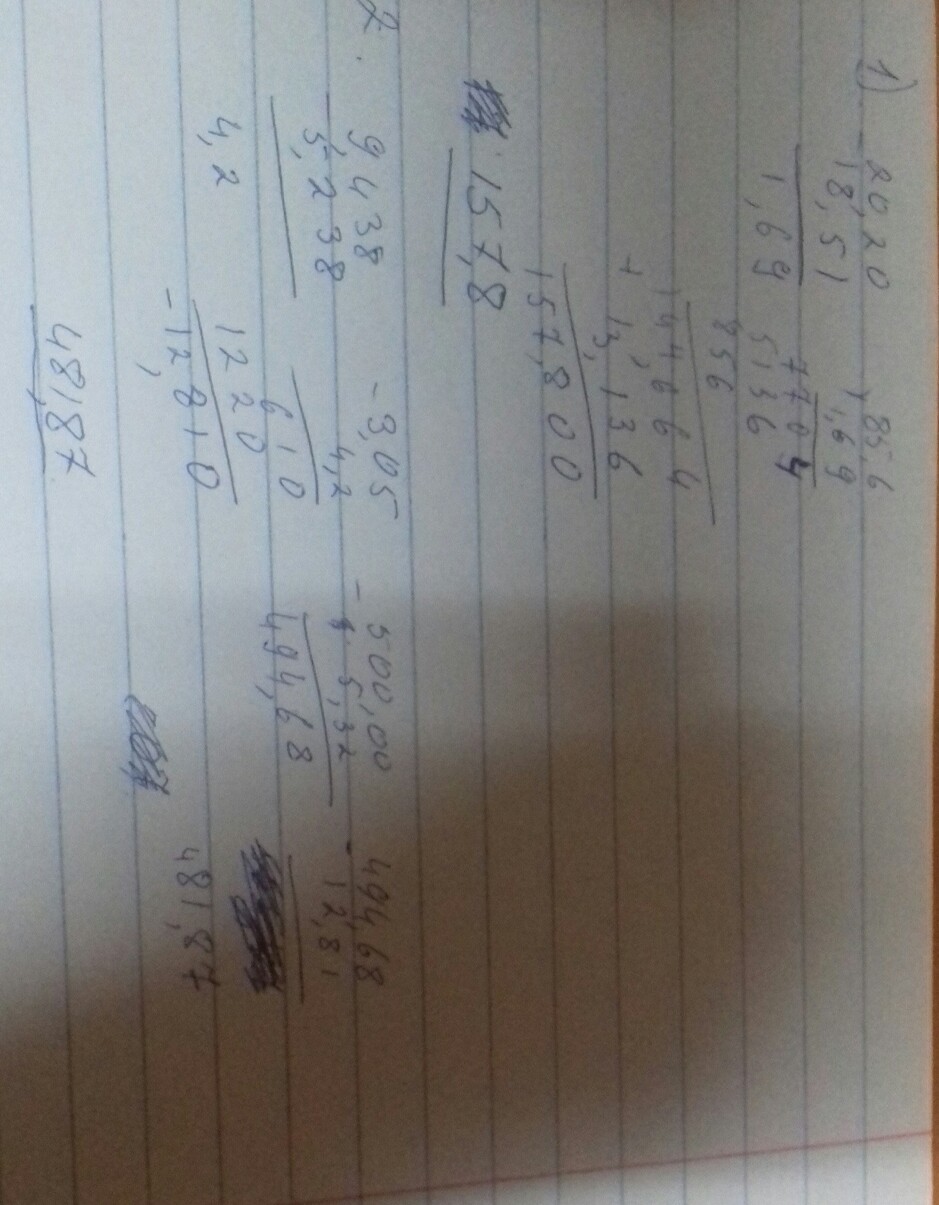 1) - 20,20
18,51
1,69
× 85,6
1,69
7704
5136
856
144,664
+ 13,136
157,800
157,8
2. - 9,438
5,238
4,2
- 3,05
4,2
610
1220
- 12,810
- 500,00
5,32
494,68
- 494,68
12,81
481,87
481,87